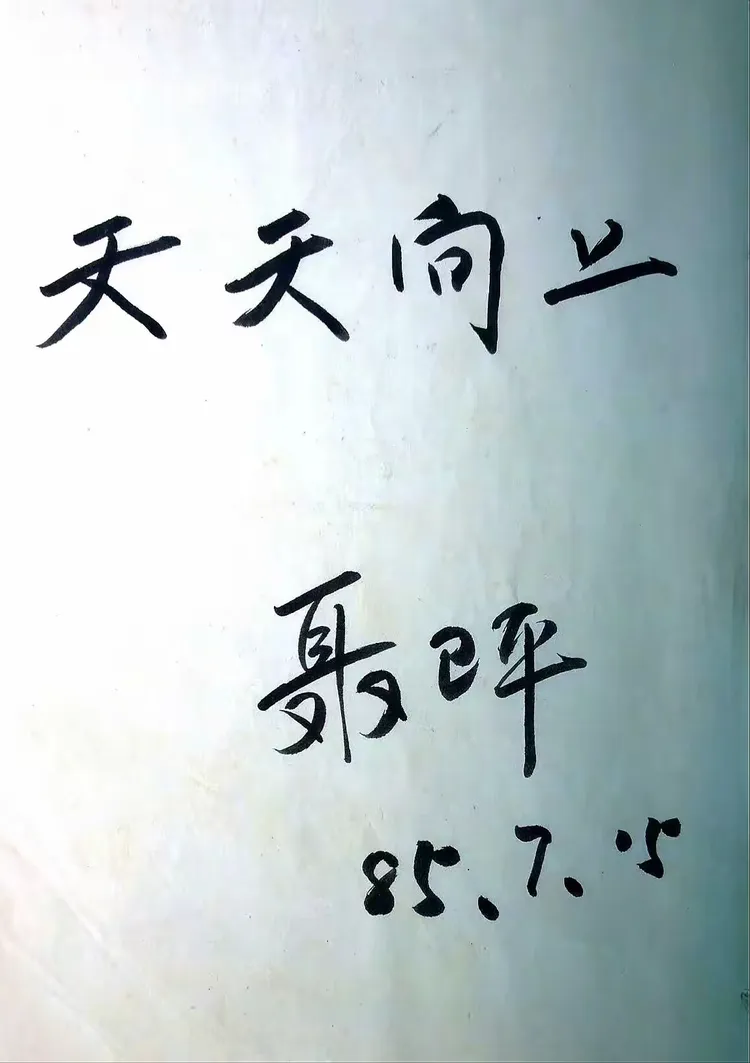 天天向上
聂卫平
85.7.15